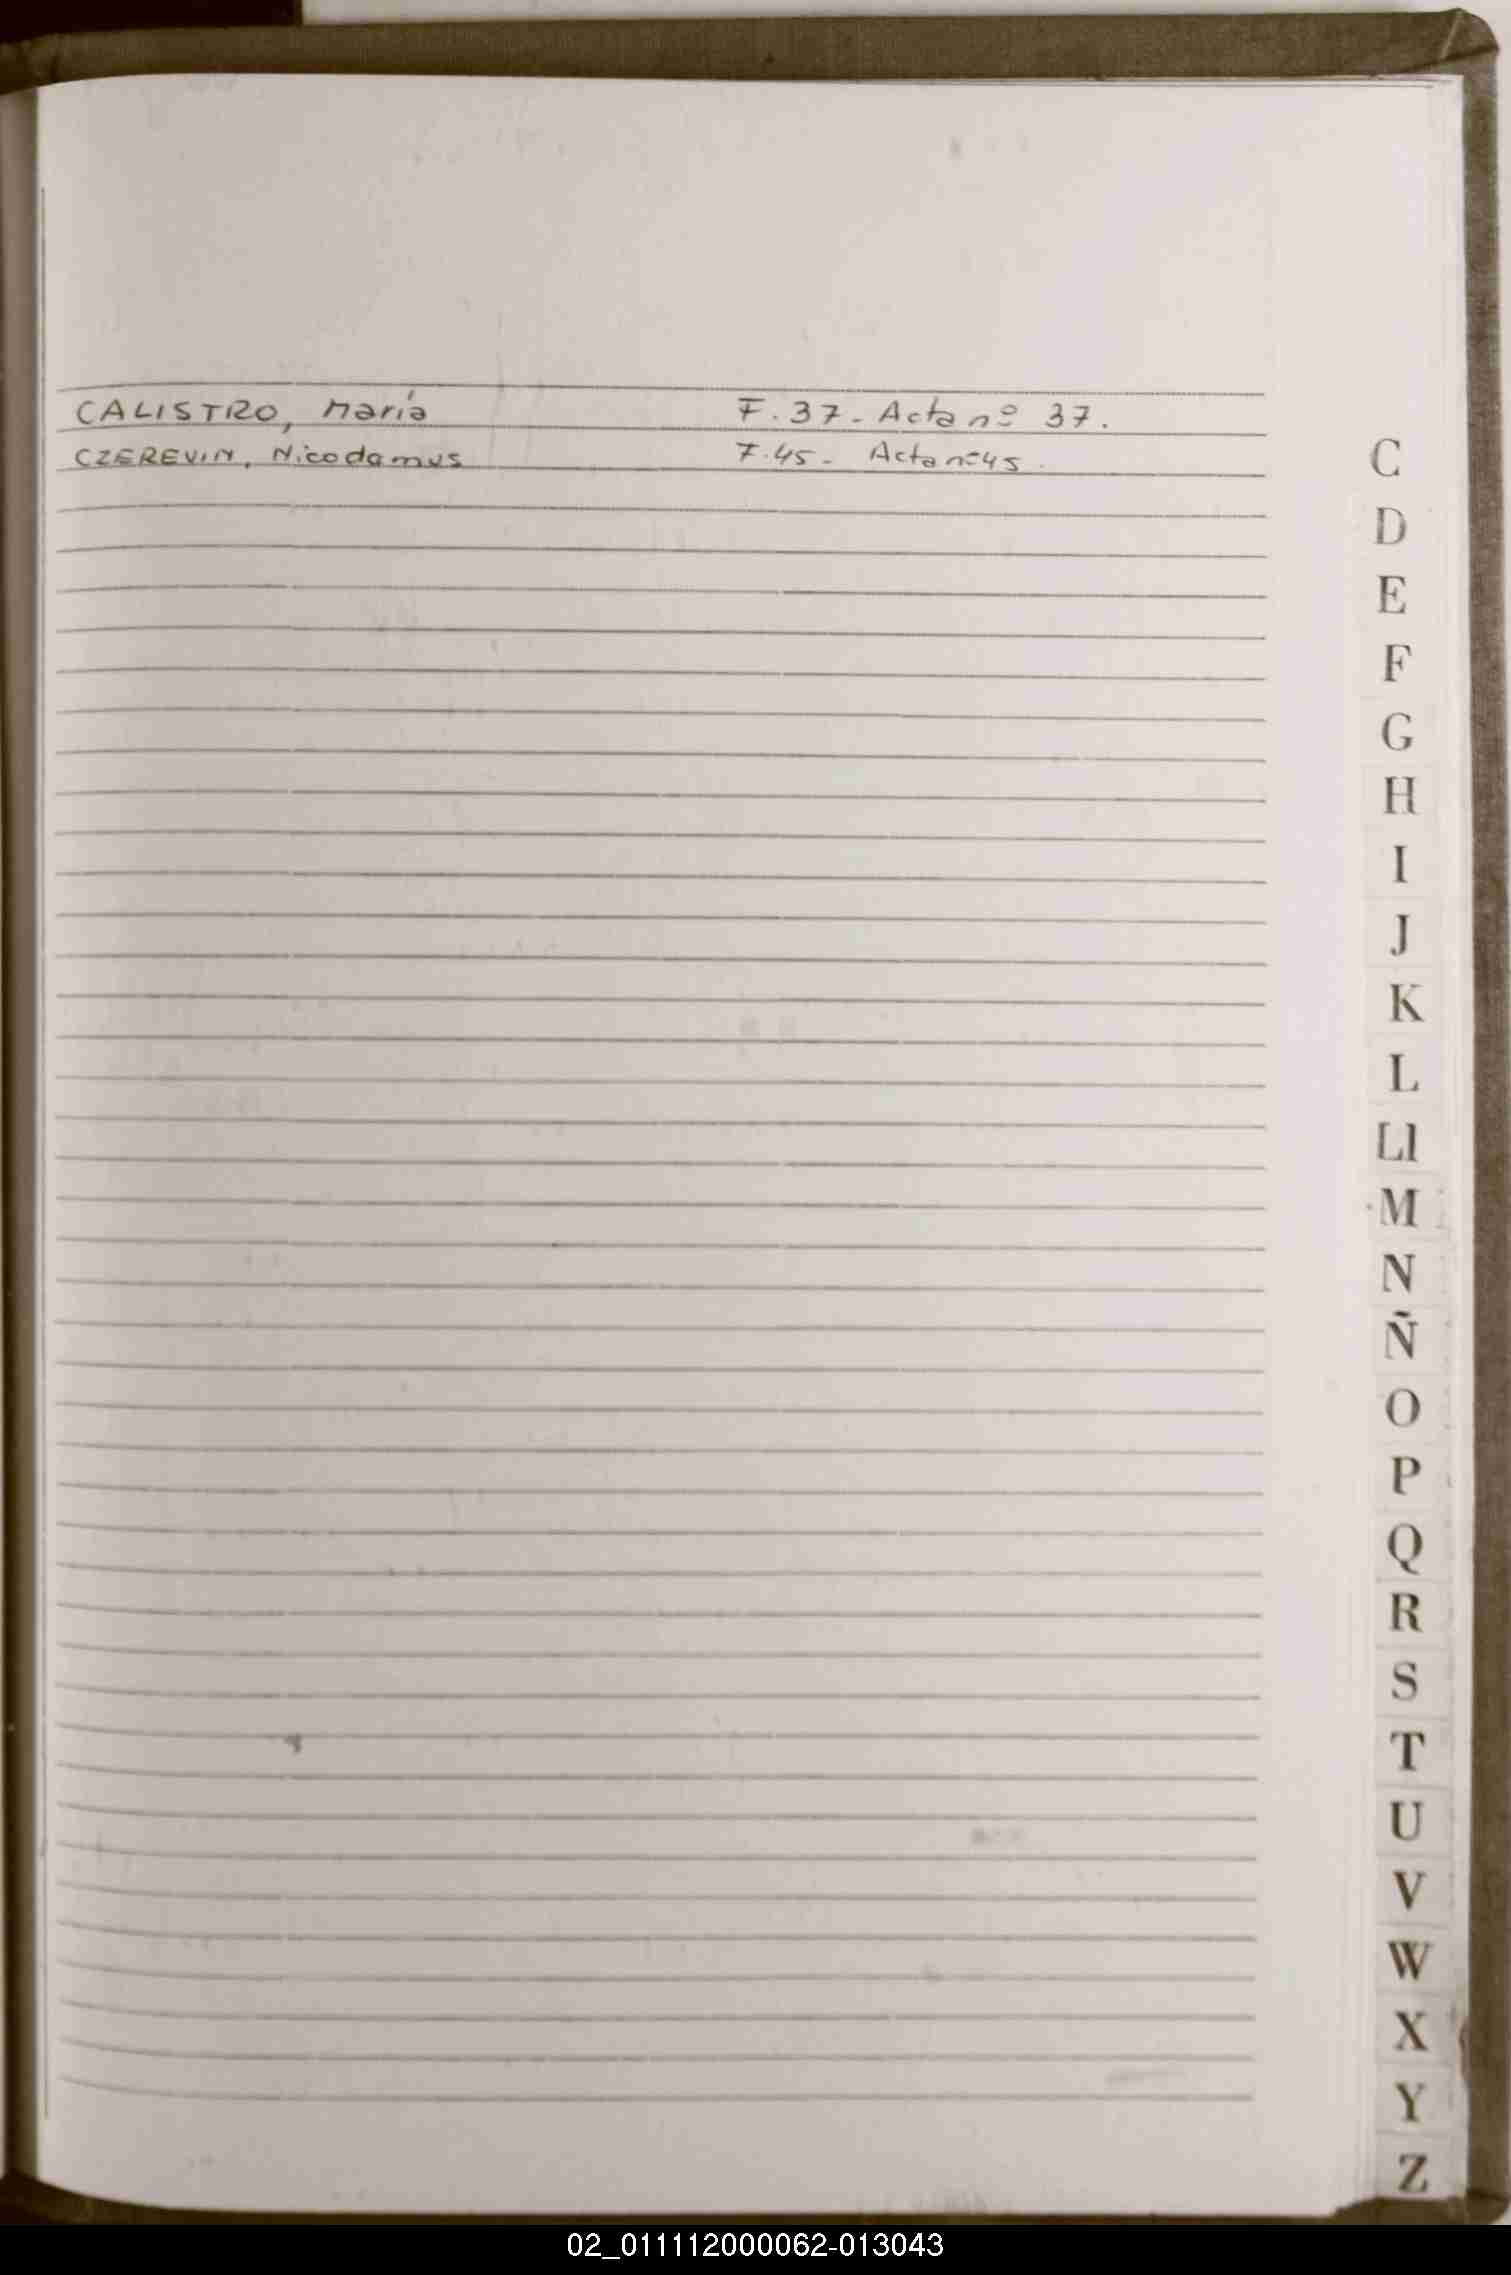 CALISTRO, María F. 37. Acta nº 37.
CZEREVIN, Nicodamus F. 45. Acta nº 45.
C
D
E
F
G
H
I
J
K
L
Ll
M
N
Ñ
O
P
Q
R
S
T
U
V
W
X
Y
Z
02_011112000062-013043